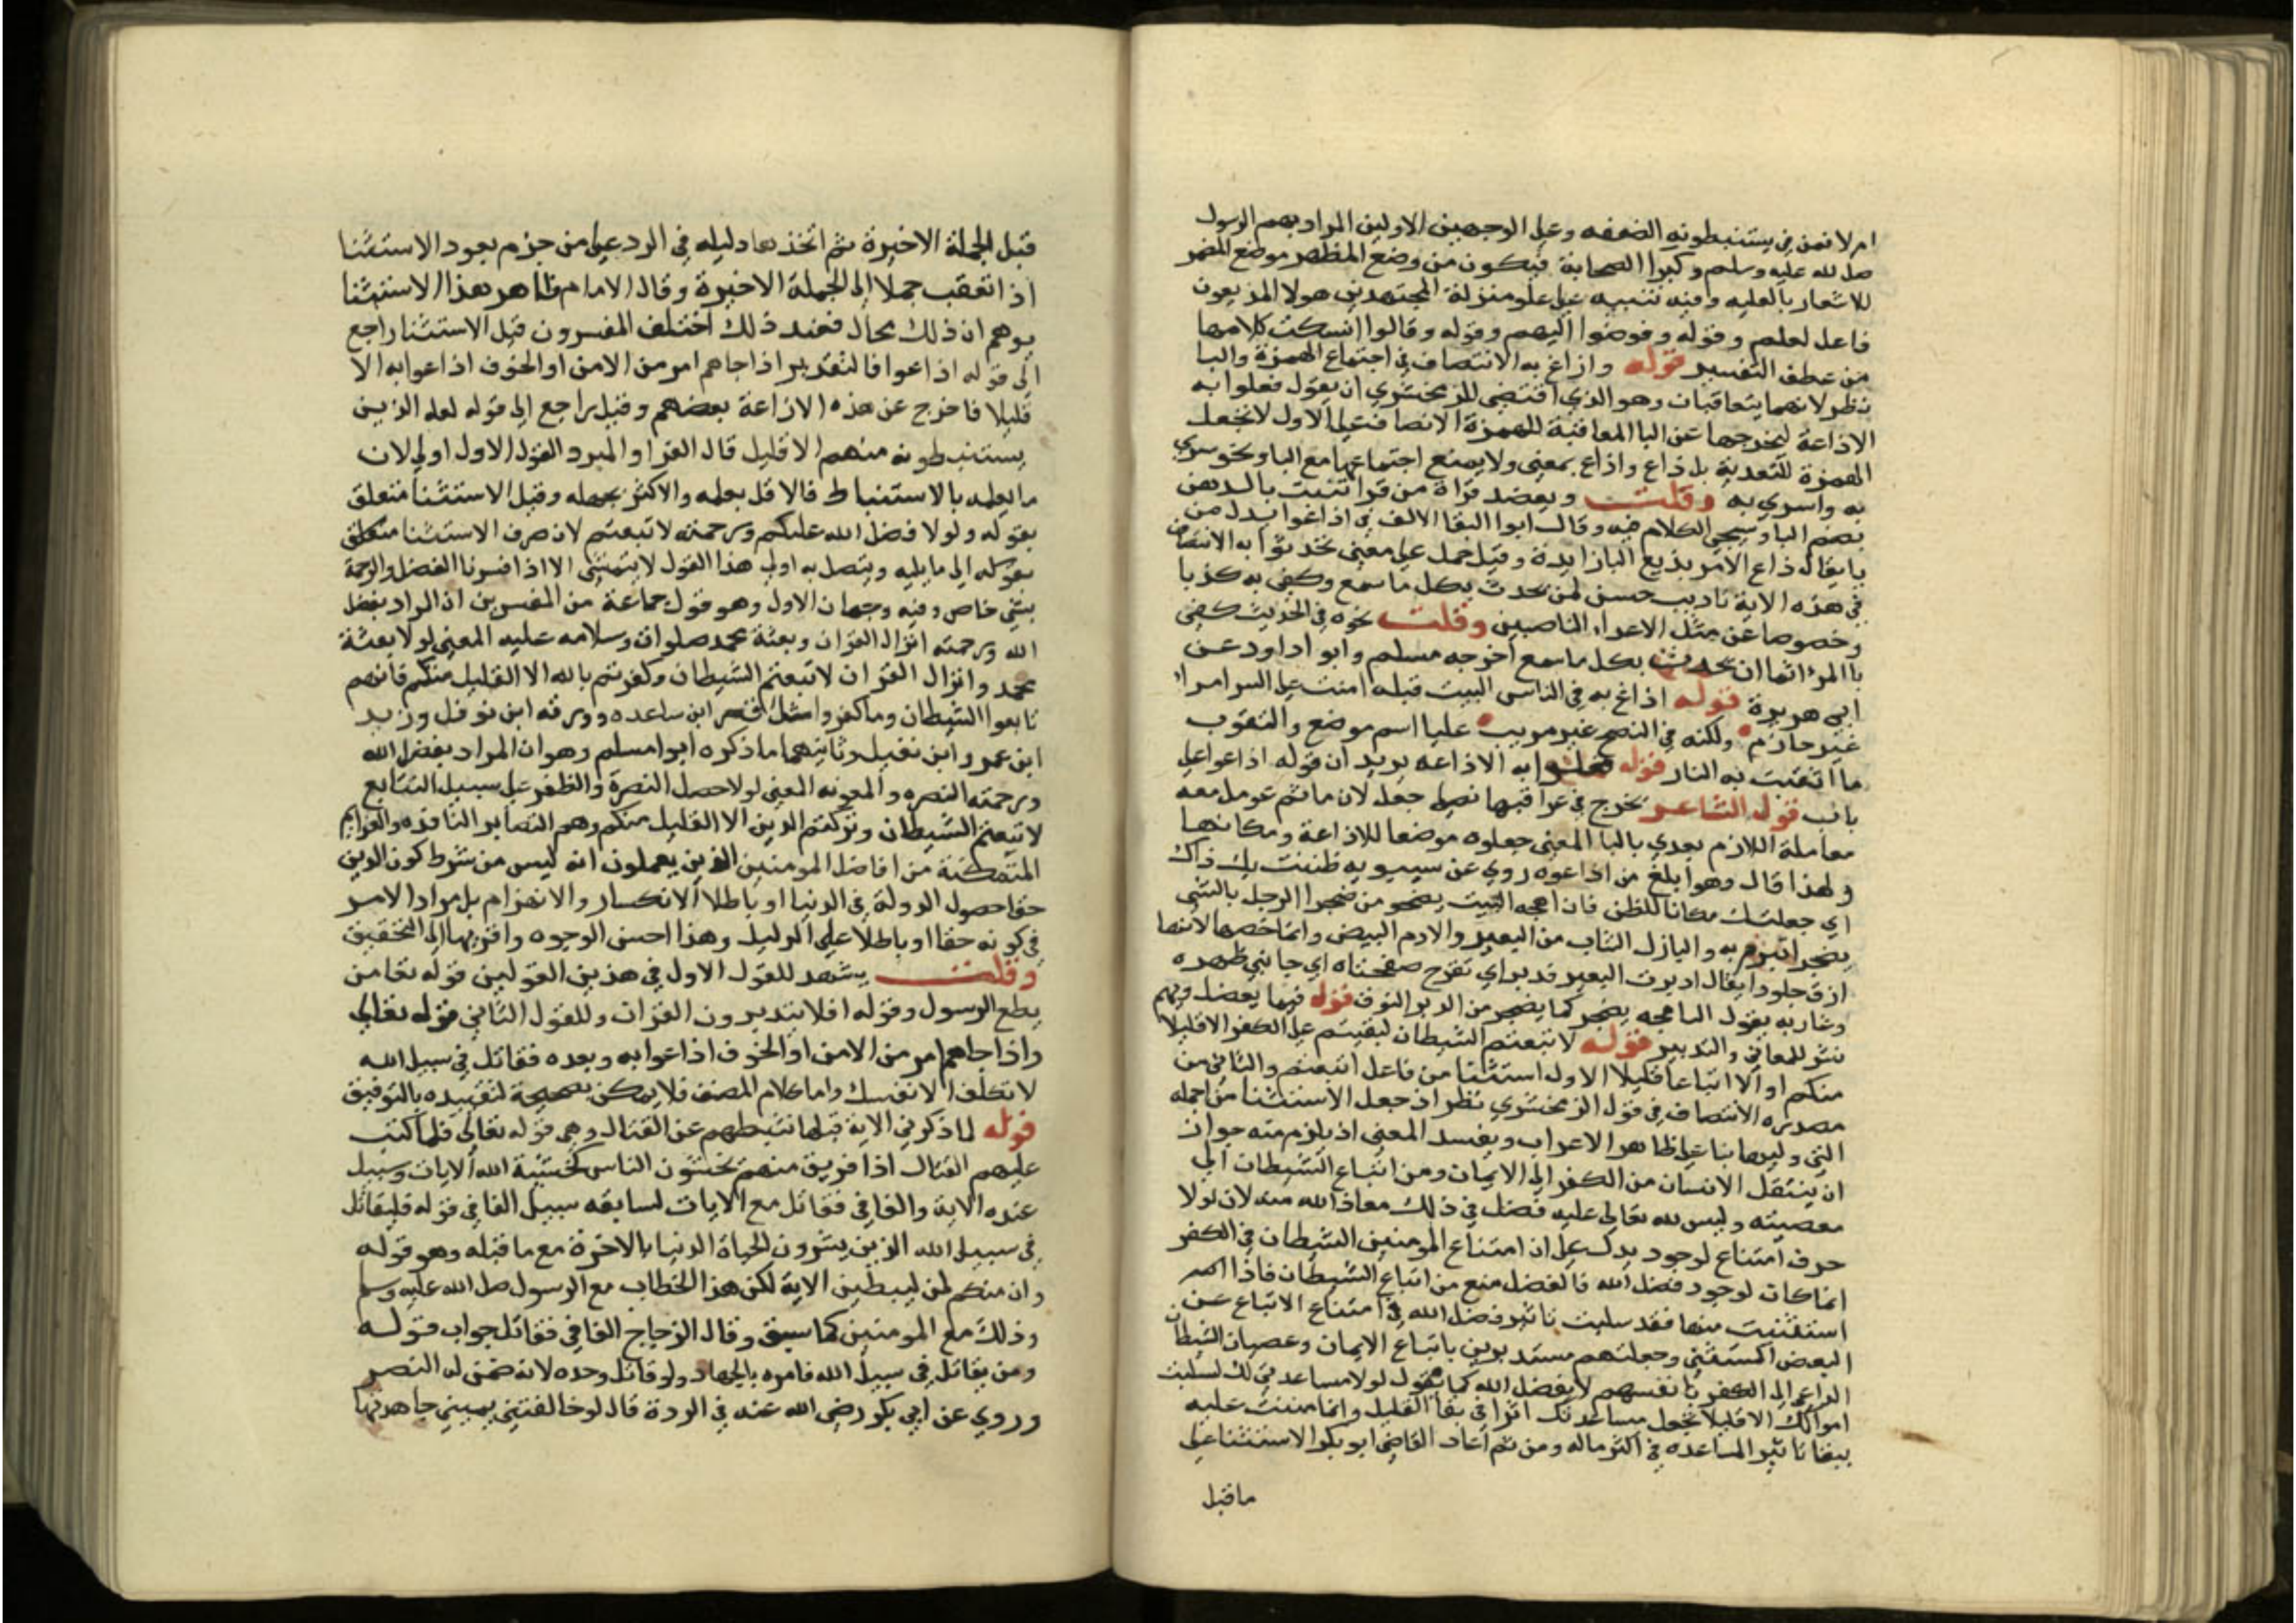 امر لا فمن في يستنبطونه الضعفه وعلى الوجهين الاولين المراد بهم الرسول
صلى الله عليه وسلم وكبرا الصحابة فيكون من وضع المظهر موضع المضمر
للاشعار بالعليه وفيه تنبيه على علو منزلة المجتهدين هولا المذيعون
فاعل لعلم وقوله وفوضوا اليهم وقوله وقالوا انسكت كلامها
من عطف التفسير قوله واذاع به الانتصاف في اجتماع الهمزة والبا
نظر لانهما يتعاقبان وهو الذي اقتضى للزمخشري ان يقول فعلوا به
الاذاعة ليخرجها عن البا المعاقبة للهمزة الانصاف فعلى الاول لا نجعل
الهمزة للتعدية بل ذاع واذاع بمعنى ولا يمنع اجتماعها مع البا ونحو سري
به واسري به وقلت ويعضد قراة من قرا تنبت بالدهن
بضم البا وسيجي الكلام فيه وقال ابوا البقا الالف في اذاعوا بدل من
يا يقال ذاع الامر يذيع البا زايدة وقيل حمل على معنى تحدثوا به الانتصاف
في هذه الاية تاديب حسن لمن يحدث بكل ما سمع وكفى به كذبا
وخصوصا عن مثل الاعداء الناصبين وقلت نحوه في الحديث كفى
با المرء اثما ان يحدث بكل ما سمع اخرجه مسلم وابو اداود عن
ابي هريرة قوله اذاع به في الناس البيت قبله امنت على السر امرا
غير حازم ولكنه في النصح غير مريب عليا اسم موضع والثقوب
ما اثقبت به النار قوله فعلوا به الاذاعه يريد ان قوله اذاعوا على
باب قول الشاعر يخرج في عراقيبها نصلي جعل لان ماثم عومل معه
معاملة اللازم يعدي بالبا المعنى جعلوه موضعا للاذاعة ومكانها
ولهذا قال وهو ابلغ من اذاعوه روي عن سيبويه ظننت بك ذاك
اي جعلتك مكانا للظن فان اهجه البيت يضجر من ضجر الرجل بالشي
يضجر اتبرم به والبازل الناب من البعير والادم البيض وانما خصها لانها
ارق جلودا يقال ادبرت البعير فدبر اي تقرح صفحتاه اي جانبي ظهره
وغاربه يقول البا هجه يضجر كما يضجر من الدبر النوق قوله فيها يعضل وبهم
نثر للمعاني والتدبير قوله لاتبعتم الشيطان لبقيتم على الكفر الا قليلا
منكم او الا اتباعا قليلا الاول استثنا من فاعل اتبعتم والثاني من
مصدره الانتصاف في قول الزمخشري نظر اذ جعل الاستثنا من الجمله
التي وليها بنا على ظاهر الاعراب ويفسد المعنى اذ يلزم منه جواز
ان ينتقل الانسان من الكفر الى الايمان ومن اتباع الشيطان الى
معصيته وليس لله تعالى عليه فضل في ذلك معاذ الله منه لان لولا
حرف امتناع لوجود يدل على ان امتناع المومنين الشيطان في الكفر
انما كان لوجود فضل الله فالفضل منع من اتباع الشيطان فاذا
استثنيت منها فقد سلبت تاثير فضل الله في امتناع الاتباع عن
البعض المستثنى وجعلتهم مستبدين باتباع الايمان وعصيان الشيطان
الداعي الى الكفر بانفسهم لا بفضل الله كما تقول لولا مساعدتي لك لسلبت
اموالك الا قليلا تجعل مساعدتك اثرا في بقا القليل وانما مننت عليه
ببقا تاثير المساعده في اكثر ماله ومن ثم اعاد القاضي ابو بكر الاستثنا على
ما قبل
قبل الجملة الاخيرة ثم اتخذ بها دليله في الرد على من جزم بعود الاستثنا
اذا تعقب جملا الى الجملة الاخيرة وقال الامام ظاهر هذا الاستثنا
يوهم ان ذلك بحال فعند ذلك اختلف المفسرون قيل الاستثنا راجع
الى قوله اذاعوا فالتقدير اذا جاهم امر من الامن او الخوف اذاعوا به الا
قليلا فاخرج عن هذه الاذاعة بعضهم وقيل راجع الى قوله لعله الذين
يستنبطونه منهم الا قليل قال الفرا والمبرد القول الاول اولى لان
ما يعلم بالاستنباط فالاقل يعلمه والاكثر يجهله وقيل الاستثنا متعلق
بقوله ولولا فضل الله عليكم ورحمته لاتبعتم لان صرف الاستثنا متعلق
بقوله الى ما يليه ويتصل به اولى هذا القول لا يتمشى الا اذا فسرنا الفضل والرحمة
بشي خاص وفيه وجهان الاول وهو قول جماعة من المفسرين ان المراد بفضل
الله ورحمته انزال القران وبعثة محمد صلوات وسلامه عليه المعنى لولا بعثة
محمد وانزال القران لاتبعتم الشيطان وكفرتم بالله الا القليل منكم فانهم
تابعوا الشيطان وما كفروا مثل قس ابن ساعده وورقه ابن نوفل وزيد
ابن عمرو ابن نفيل وثانيهما ما ذكره ابوا مسلم وهو ان المراد بفضل الله
ورحمته النصره والمعونه المعنى لولا حصل النصرة والظفر على سبيل التتابع
لاتبعتم الشيطان وتركتم الدين الا القليل منكم وهم البصاير النافذه والعزايم
المتمكنة من افاضل المومنين الذين يعملون انه ليس من شرط كون الدين
حقا حصول الدولة في الدنيا او باطلا الانكسار والانهزام بل مراد الامر
في كونه حقا او باطلا على الدليل وهذا احسن الوجوه واقربها الى التحقيق
وقلت يشهد للقول الاول في هذين القولين قوله تعا من
يطع الرسول وقوله افلا يتدبرون القران وللقول الثاني قوله تعالى
واذا جاهم امر من الامن او الخوف اذاعوا به وبعده فقاتل في سبيل الله
لا تكلف الا نفسك واما كلام المصنف فلا يمكن تصحيحه لتقييده بالتوفيق
قوله لما ذكر في الاية قبلها تثبطهم عن القتال وهي قوله تعالى فلما كتب
عليهم القتال اذا فريق منهم يخشون الناس كخشية الله الايات وسبيل
هذه الاية والفا في فقاتل مع الايات لسابقه سبيل الفا في قوله فليقاتل
في سبيل الله الذين يشرون الحياة الدنيا بالاخرة مع ما قبله وهو قوله
وان منكم لمن ليبطين الاية لكن هذا الخطاب مع الرسول صلى الله عليه وسلم
وذلك مع المومنين كما سبق وقال الزجاج الفا في فقاتل جواب قوله
ومن يقاتل في سبيل الله فامره بالجهاد ولو قاتل وحده لانه ضمن له النصر
وروي عن ابي بكر رضي الله عنه في الردة قال لو خالفتني يميني جاهدتها